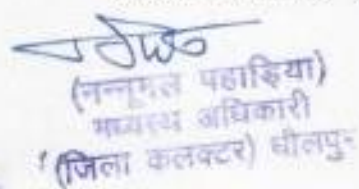 (नन्नूमल पहाडिया)
मध्यस्थ अधिकारी
(जिला कलक्टर) धौलपुर